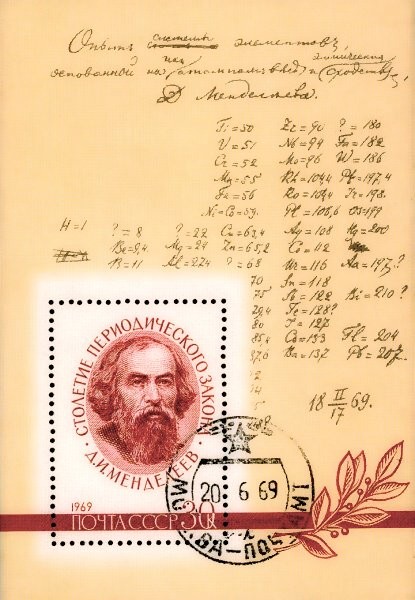 Опытъ системы элементовъ,
основанной на ихъ атомномъ вѣсѣ и химическомъ сходствѣ
Д. Менделѣева.
Ti=50 Zr=90 ?=180
V=51 Nb=94 Ta=182
Cr=52 Mo=96 W=186
Mn=55 Rh=104,4 Pt=197,4
Fe=56 Ru=104,4 Ir=198
Ni=Co=59 Pl=106,6 Os=199
H=1 ?=8 ?=22 Cu=63,4 Ag=108 Hg=200
Be=9,4 Mg=24 Zn=65,2 Cd=112
B=11 Al=27,4 ?=68 Ur=116 Au=197?
70 Sn=118
75 Sb=122 Bi=210?
79,4 Te=128?
80 I=127
85,4 Cs=133 Tl=204
87,6 Ba=137 Pb=207
18 II/17 69.
СТОЛЕТИЕ ПЕРИОДИЧЕСКОГО ЗАКОНА
Д.И.МЕНДЕЛЕЕВ
1969
ПОЧТА СССР 30К
20 6 69
МОСКВА-ПОЧТАМТ